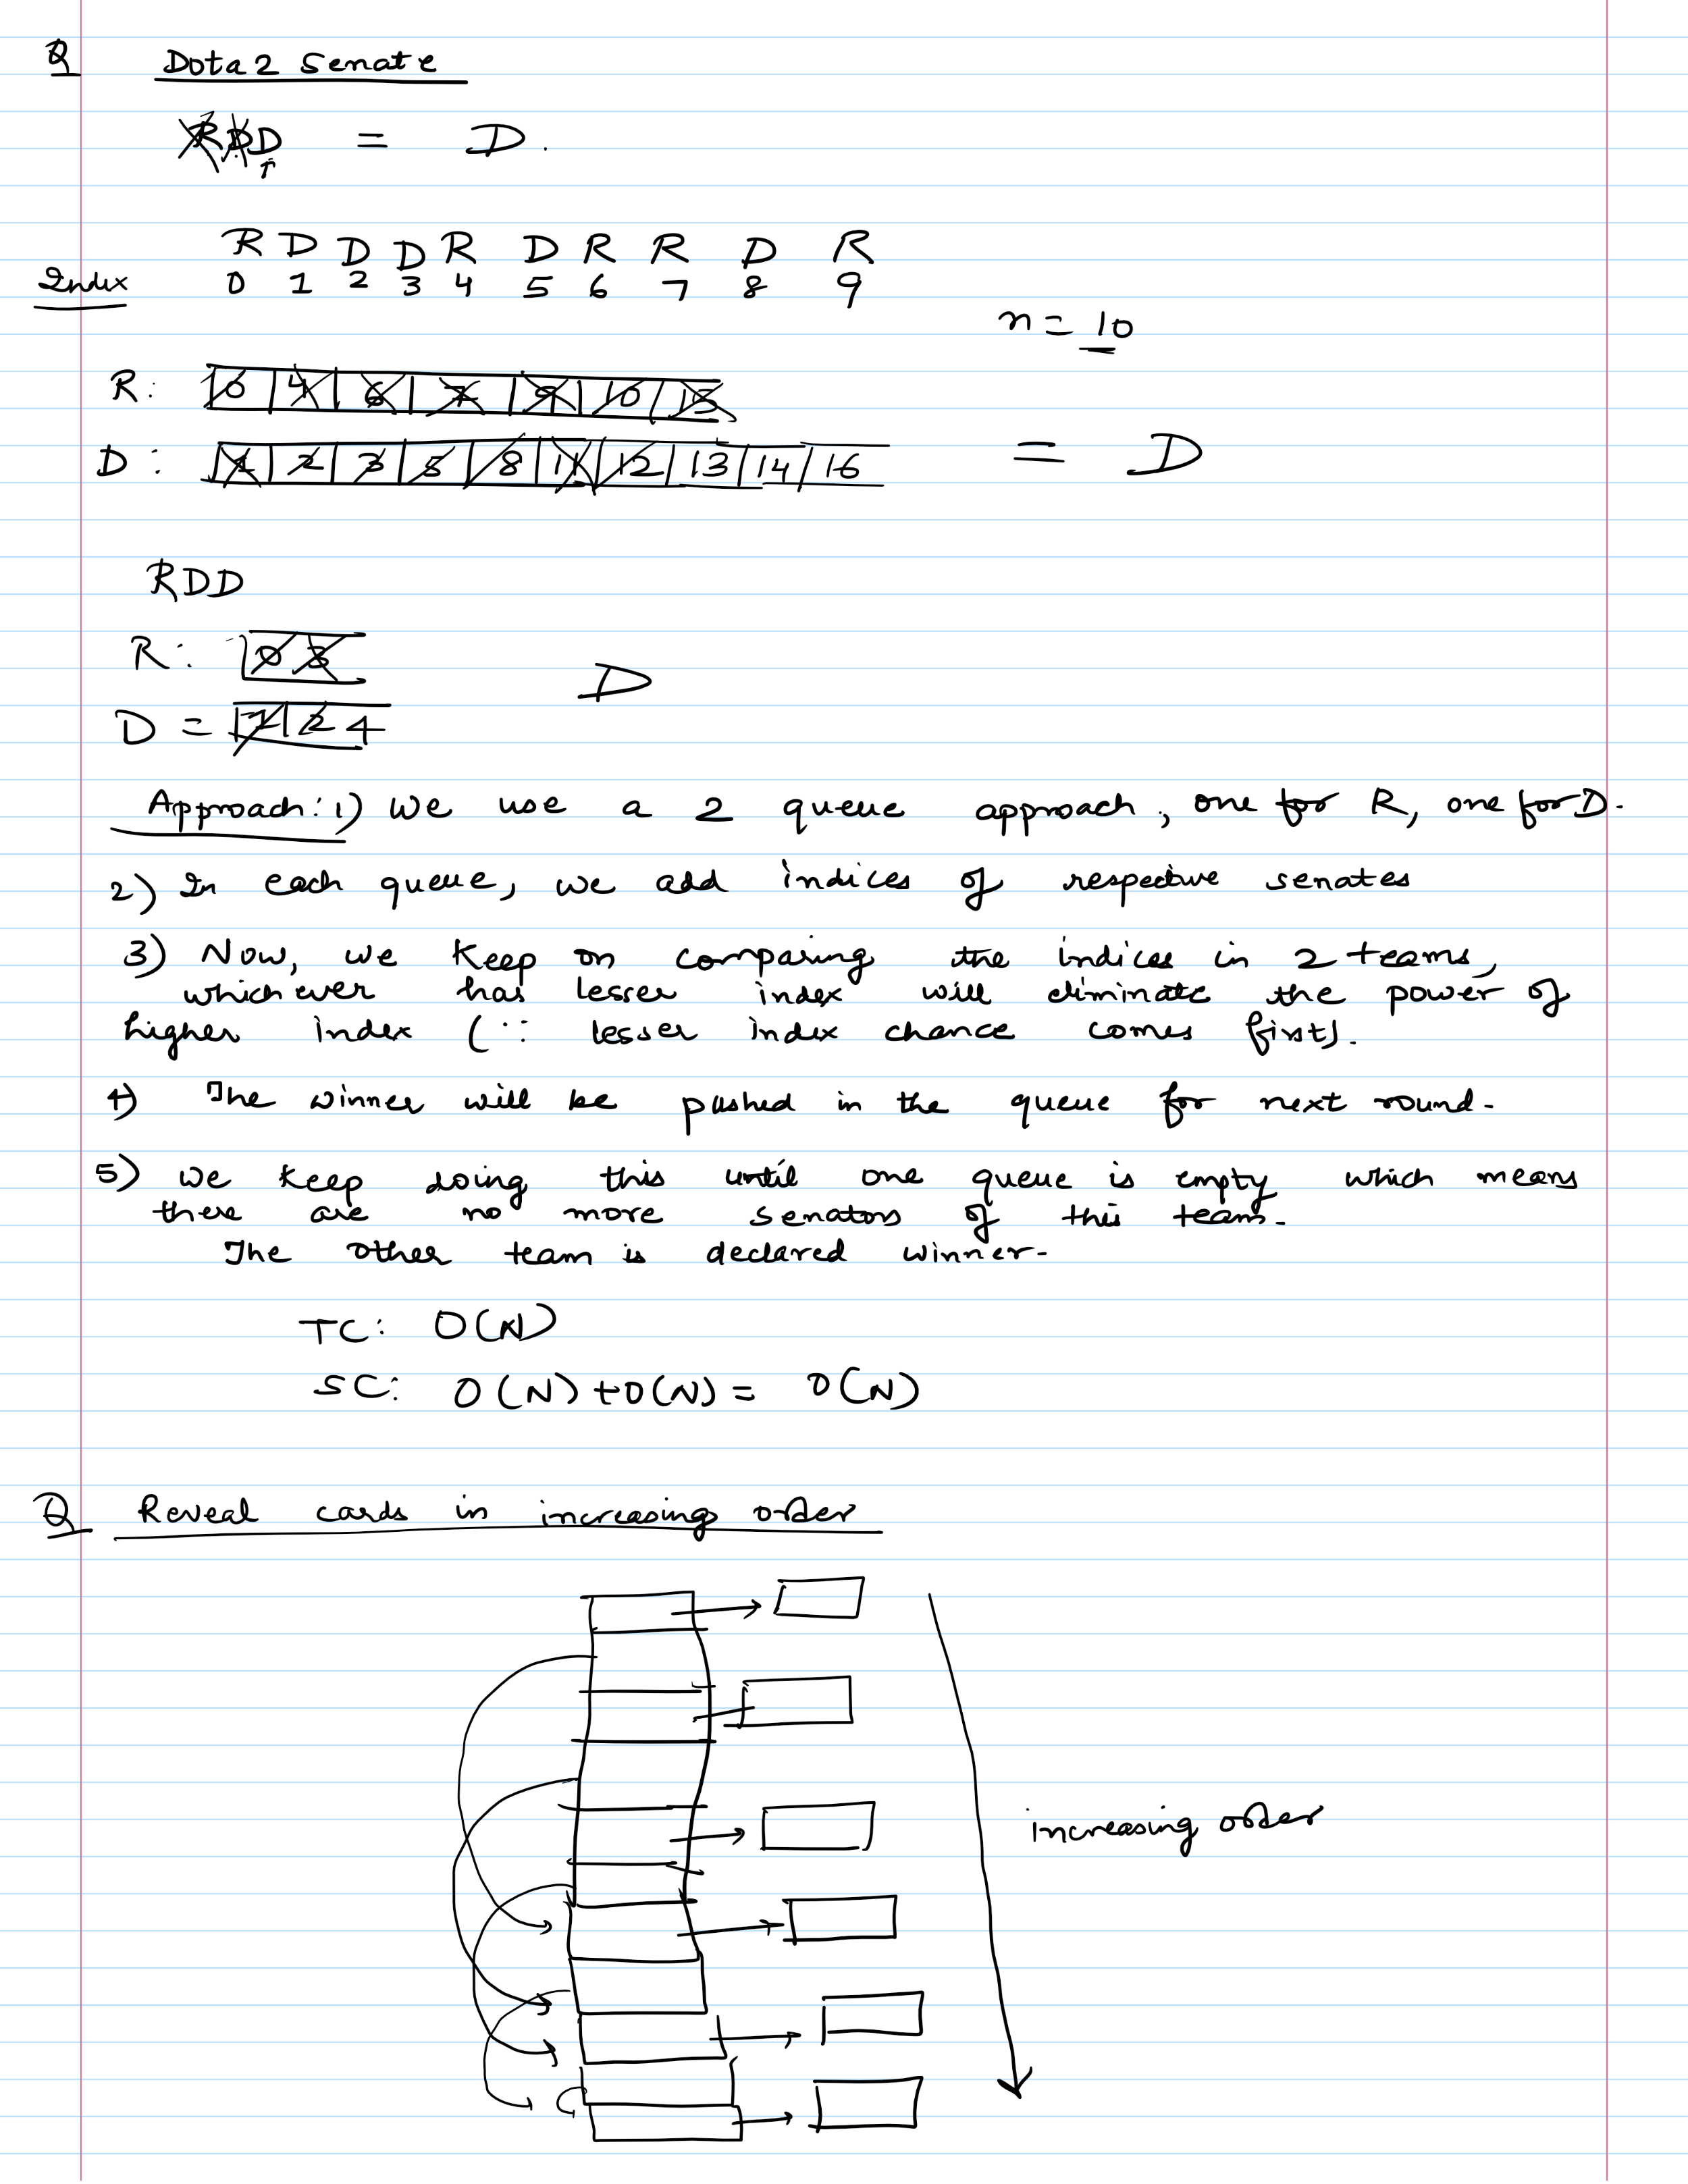 Q Dota2 Senate
RDD = D.
R D D D R D R R D R
Index 0 1 2 3 4 5 6 7 8 9
n = 10
R: 0 4 6 7 9 10 15
D: 1 2 3 5 8 11 12 13 14 16 = D
RDD
R: 0 3
D
D = 1 2 4
Approach: 1) We use a 2 queue approach, one for R, one for D.
2) In each queue, we add indices of respective senates
3) Now, we keep on comparing the indices in 2 teams,
which ever has lesser index will eliminate the power of
higher index (∵ lesser index chance comes first).
4) The winner will be pushed in the queue for next round.
5) We keep doing this until one queue is empty which means
there are no more senators of this team.
The other team is declared winner.
TC: O(N)
SC: O(N)+O(N) = O(N)
Q Reveal cards in increasing order
increasing order